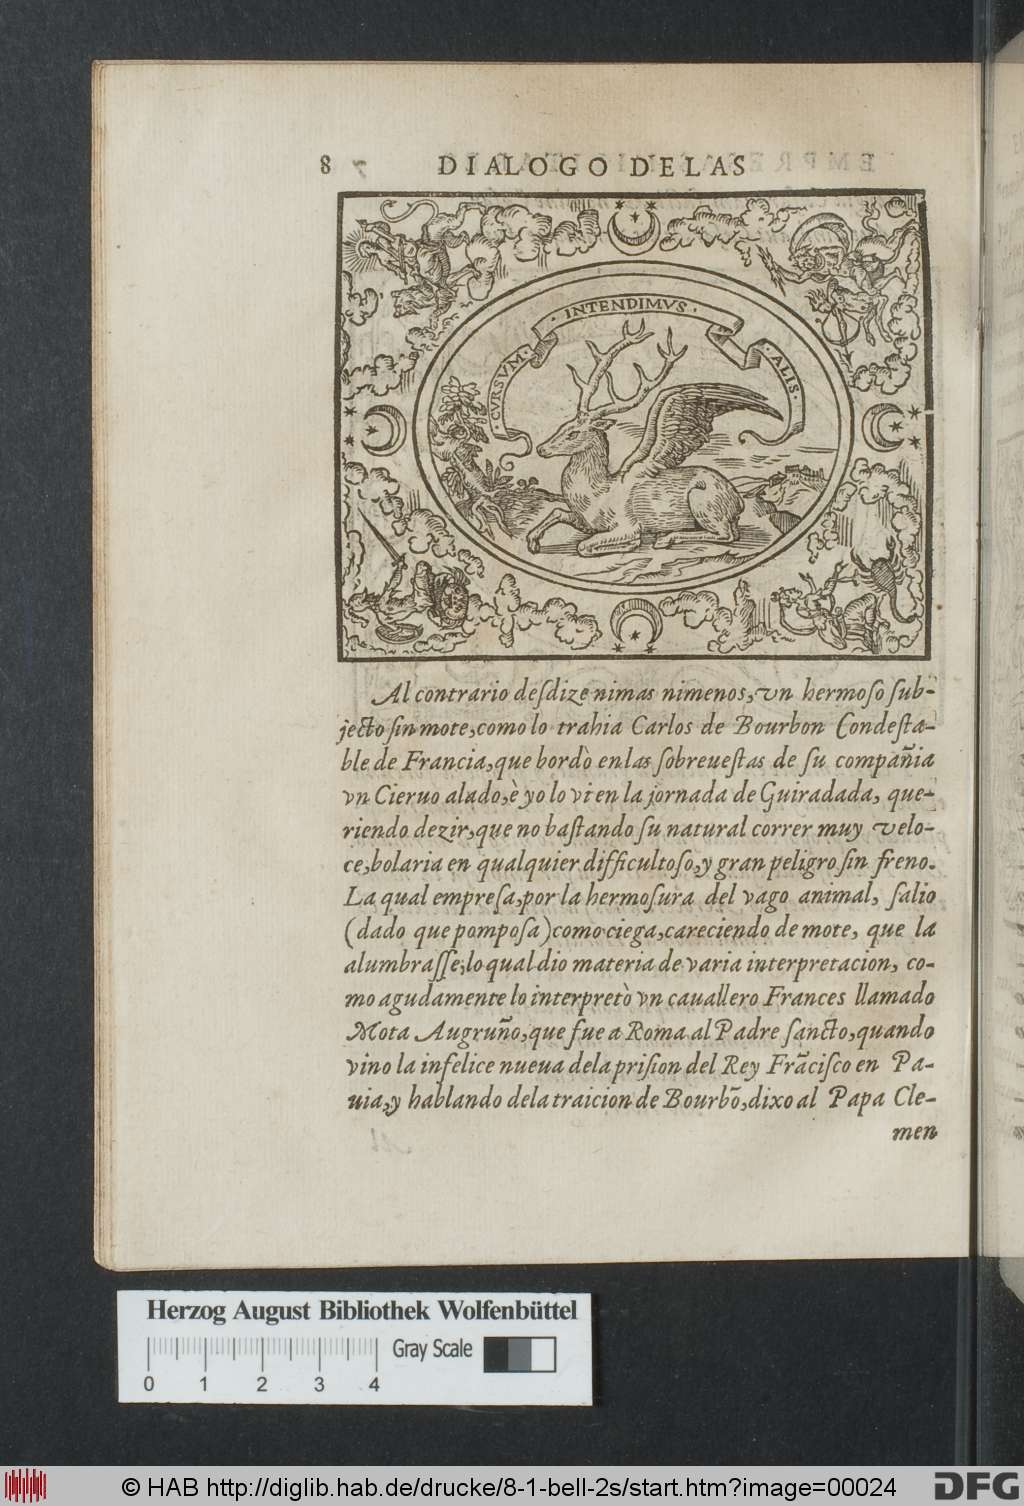 8 DIALOGO DE LAS
CVRSVM · INTENDIMVS · ALIS ·
Al contrario desdize nimas nimenos, vn hermoso sub-
jecto sin mote, como lo trahia Carlos de Bourbon Condesta-
ble de Francia, que bordò en las sobreuestas de su compañia
vn Cieruo alado, è yo lo vi en la jornada de Guiradada, que-
riendo dezir, que no bastando su natural correr muy velo-
ce, bolaria en qualquier difficultoso, y gran peligro sin freno.
La qual empresa, por la hermosura del vago animal, salio
(dado que pomposa) como ciega, careciendo de mote, que la
alumbrasse; lo qual dio materia de varia interpretacion, co-
mo agudamente lo interpretò vn cauallero Frances llamado
Mota Augruño, que fue a Roma al Padre sancto, quando
vino la infelice nueua dela prision del Rey Frãcisco en Pa-
uia, y hablando dela traicion de Bourbõ, dixo al Papa Cle-
men
Herzog August Bibliothek Wolfenbüttel
Gray Scale
0 1 2 3 4
© HAB http://diglib.hab.de/drucke/8-1-bell-2s/start.htm?image=00024
DFG